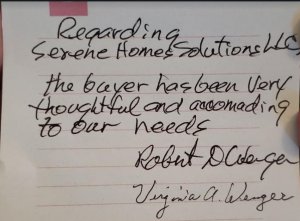 Regarding
Serene Homes Solutions LLC
the buyer has been very
thoughtful and accomading
to our needs
Robert D Wenger
Virginia A. Wenger